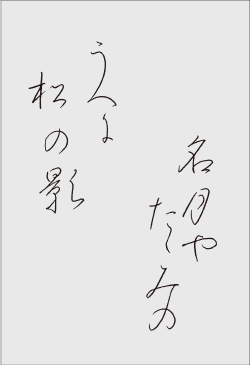 名月や
たゝみの
うへに
松の影